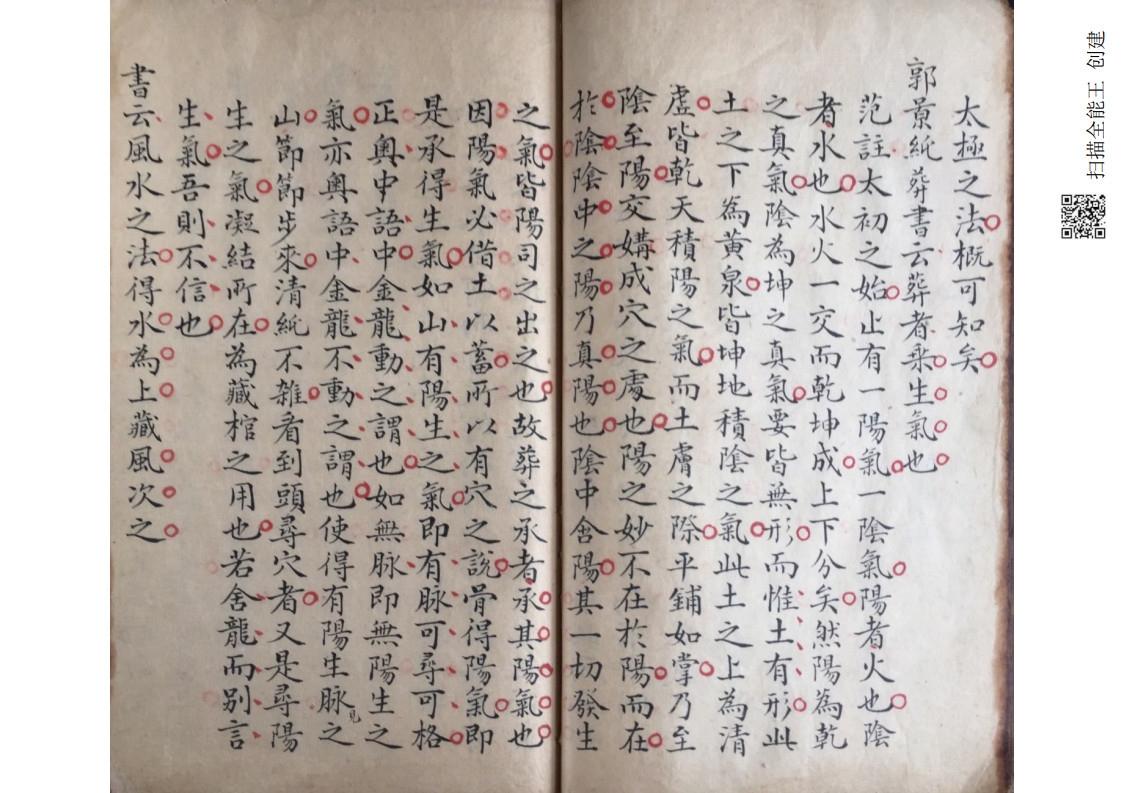 太極之法概可知矣
郭景純葬書云葬者乘生氣也
范註太初之始止有一陽氣一陰氣陽者火也陰
者水也水火一交而乾坤成上下分矣然陽為乾
之真氣陰為坤之真氣要皆無形而惟土有形此
土之下為黃泉皆坤地積陰之氣此土之上為清
虛皆乾天積陽之氣而土膚之際平鋪如掌乃至
陰至陽交媾成穴之處也陽之妙不在於陽而在
於陰陰中之陽乃真陽也陰中含陽其一切發生
之氣皆陽司之出之也故葬之承者承其陽氣也
因陽氣必借土以蓄所以有穴之說骨得陽氣即
是承得生氣如山有陽生之氣即有脉可尋可格
正奧中語中金龍動之謂也如無脉即無陽生之
氣亦奧語中金龍不動之謂也使得有陽生脉見之
山節節步來清純不雜看到頭尋穴者又是尋陽
生之氣凝結所在為藏棺之用也若舍龍而別言
生氣吾則不信也
書云風水之法得水為上藏風次之
扫描全能王 创建